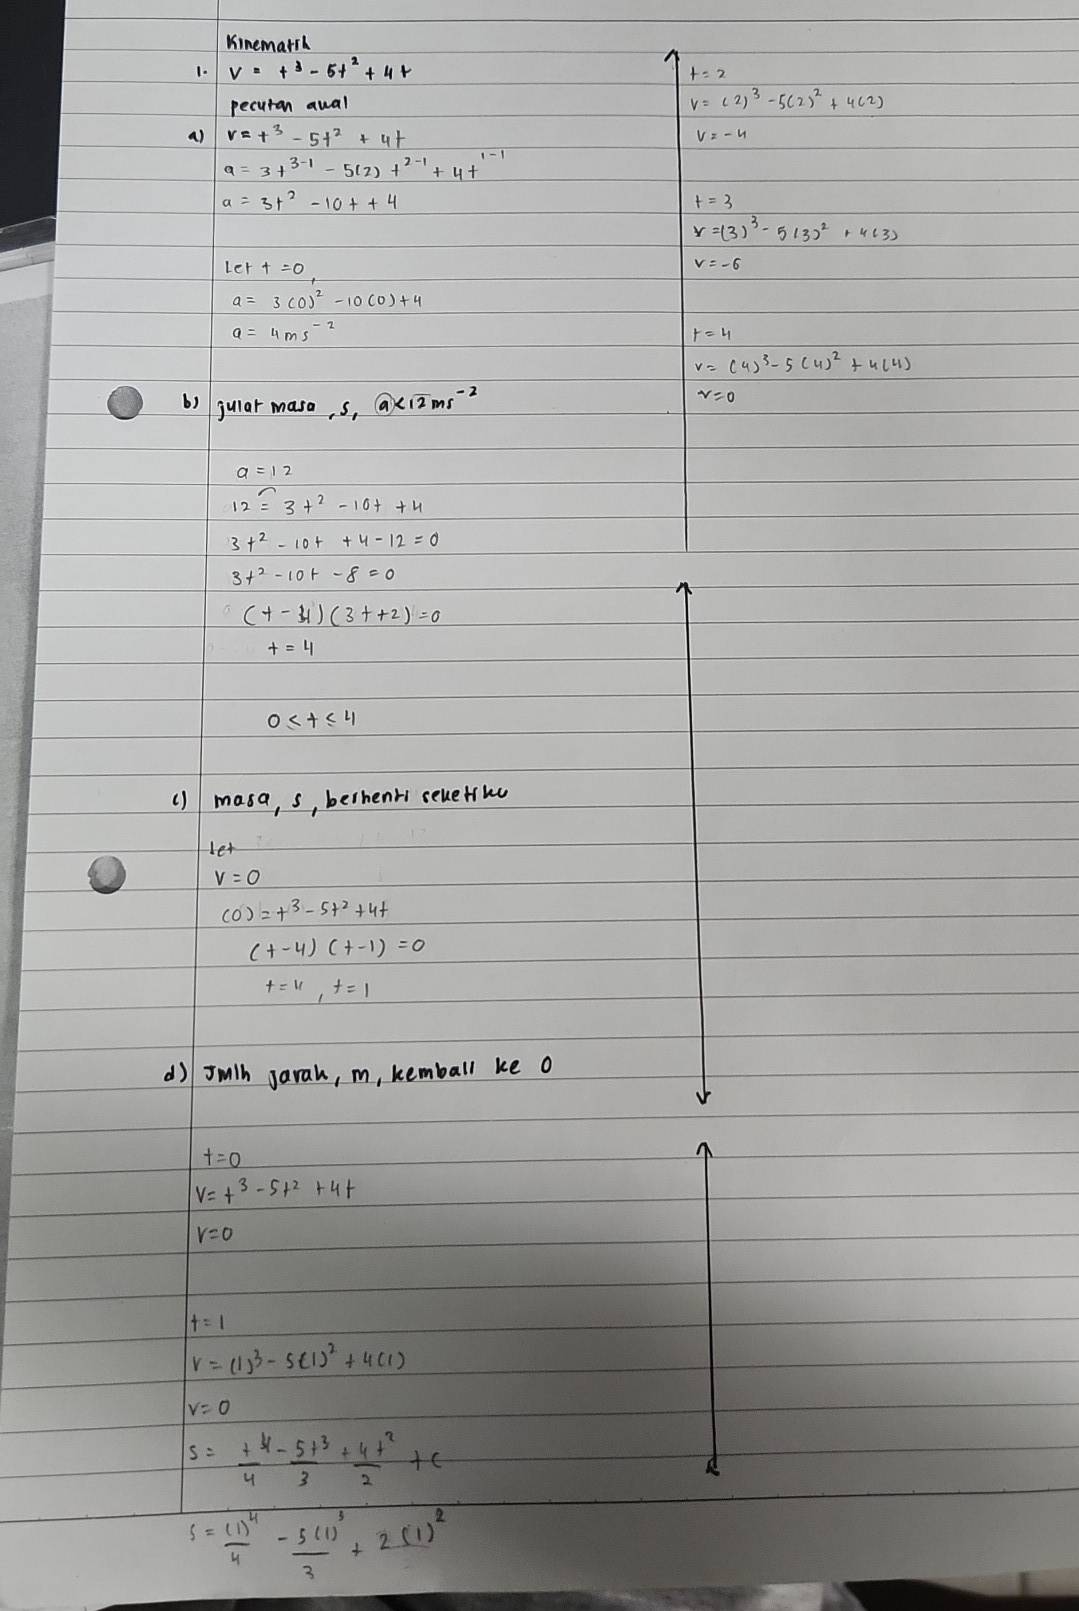 Kinematik
1. v = t³ - 5t² + 4t
pecutan awal
a) v = t³ - 5t² + 4t
a = 3t³⁻¹ - 5(2)t²⁻¹ + 4t¹⁻¹
a = 3t² - 10t + 4
Let t = 0,
a = 3(0)² - 10(0) + 4
a = 4ms⁻²
b) julat masa, s, a < 12ms⁻²
a = 12
12 = 3t² - 10t + 4
3t² - 10t + 4 - 12 = 0
3t² - 10t - 8 = 0
(t - 4)(3t + 2) = 0
t = 4
0 < t ≤ 4
c) masa, s, berhenti seketika
Let
v = 0
(0) = t³ - 5t² + 4t
(t - 4)(t - 1) = 0
t = 4, t = 1
d) Jmlh jarak, m, kembali ke 0
t = 0
v = t³ - 5t² + 4t
v = 0
t = 1
v = (1)³ - 5(1)² + 4(1)
v = 0
s = t⁴/4 - 5t³/3 + 4t²/2 + c
s = (1)⁴/4 - 5(1)³/3 + 2(1)²
t = 2
v = (2)³ - 5(2)² + 4(2)
v = -4
t = 3
v = (3)³ - 5(3)² + 4(3)
v = -6
t = 4
v = (4)³ - 5(4)² + 4(4)
v = 0